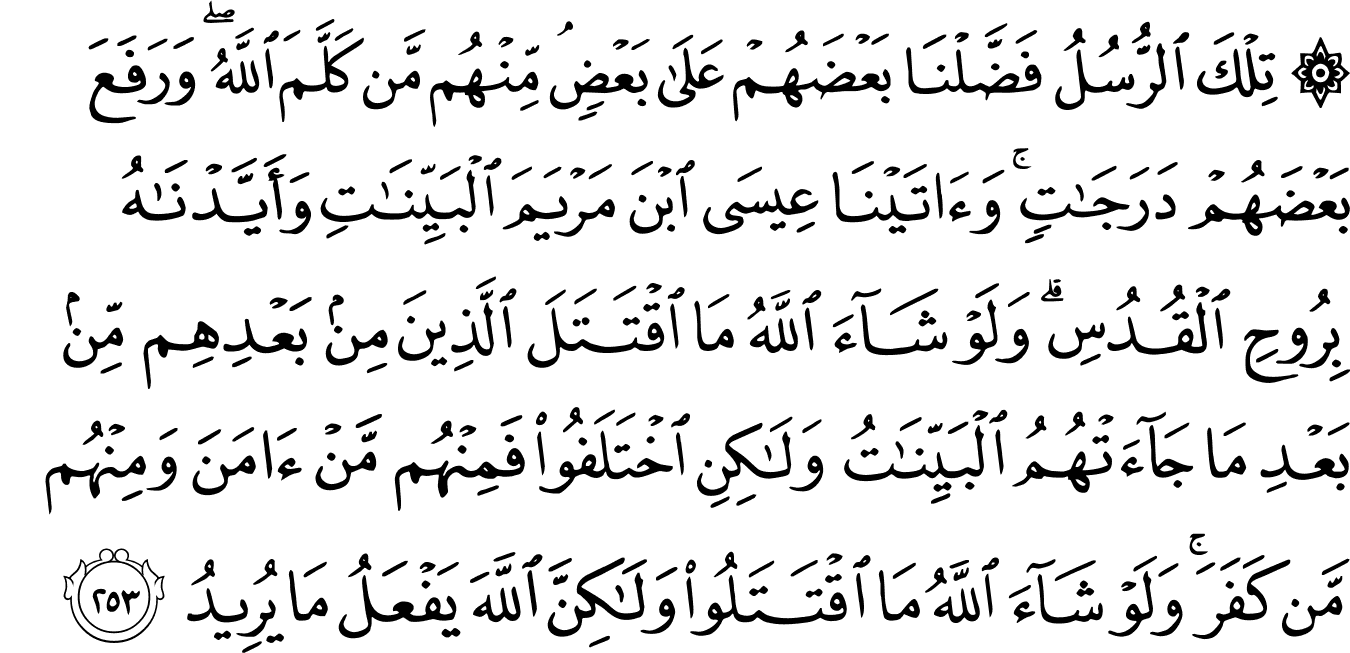 ۞ تِلْكَ ٱلرُّسُلُ فَضَّلْنَا بَعْضَهُمْ عَلَىٰ بَعْضٍۘ مِّنْهُم مَّن كَلَّمَ ٱللَّهُۖ وَرَفَعَ
بَعْضَهُمْ دَرَجَٰتٍۚ وَءَاتَيْنَا عِيسَى ٱبْنَ مَرْيَمَ ٱلْبَيِّنَٰتِ وَأَيَّدْنَٰهُ
بِرُوحِ ٱلْقُدُسِۗ وَلَوْ شَآءَ ٱللَّهُ مَا ٱقْتَتَلَ ٱلَّذِينَ مِنۢ بَعْدِهِم مِّنۢ
بَعْدِ مَا جَآءَتْهُمُ ٱلْبَيِّنَٰتُ وَلَٰكِنِ ٱخْتَلَفُوا۟ فَمِنْهُم مَّنْ ءَامَنَ وَمِنْهُم
مَّن كَفَرَۚ وَلَوْ شَآءَ ٱللَّهُ مَا ٱقْتَتَلُوا۟ وَلَٰكِنَّ ٱللَّهَ يَفْعَلُ مَا يُرِيدُ ٢٥٣